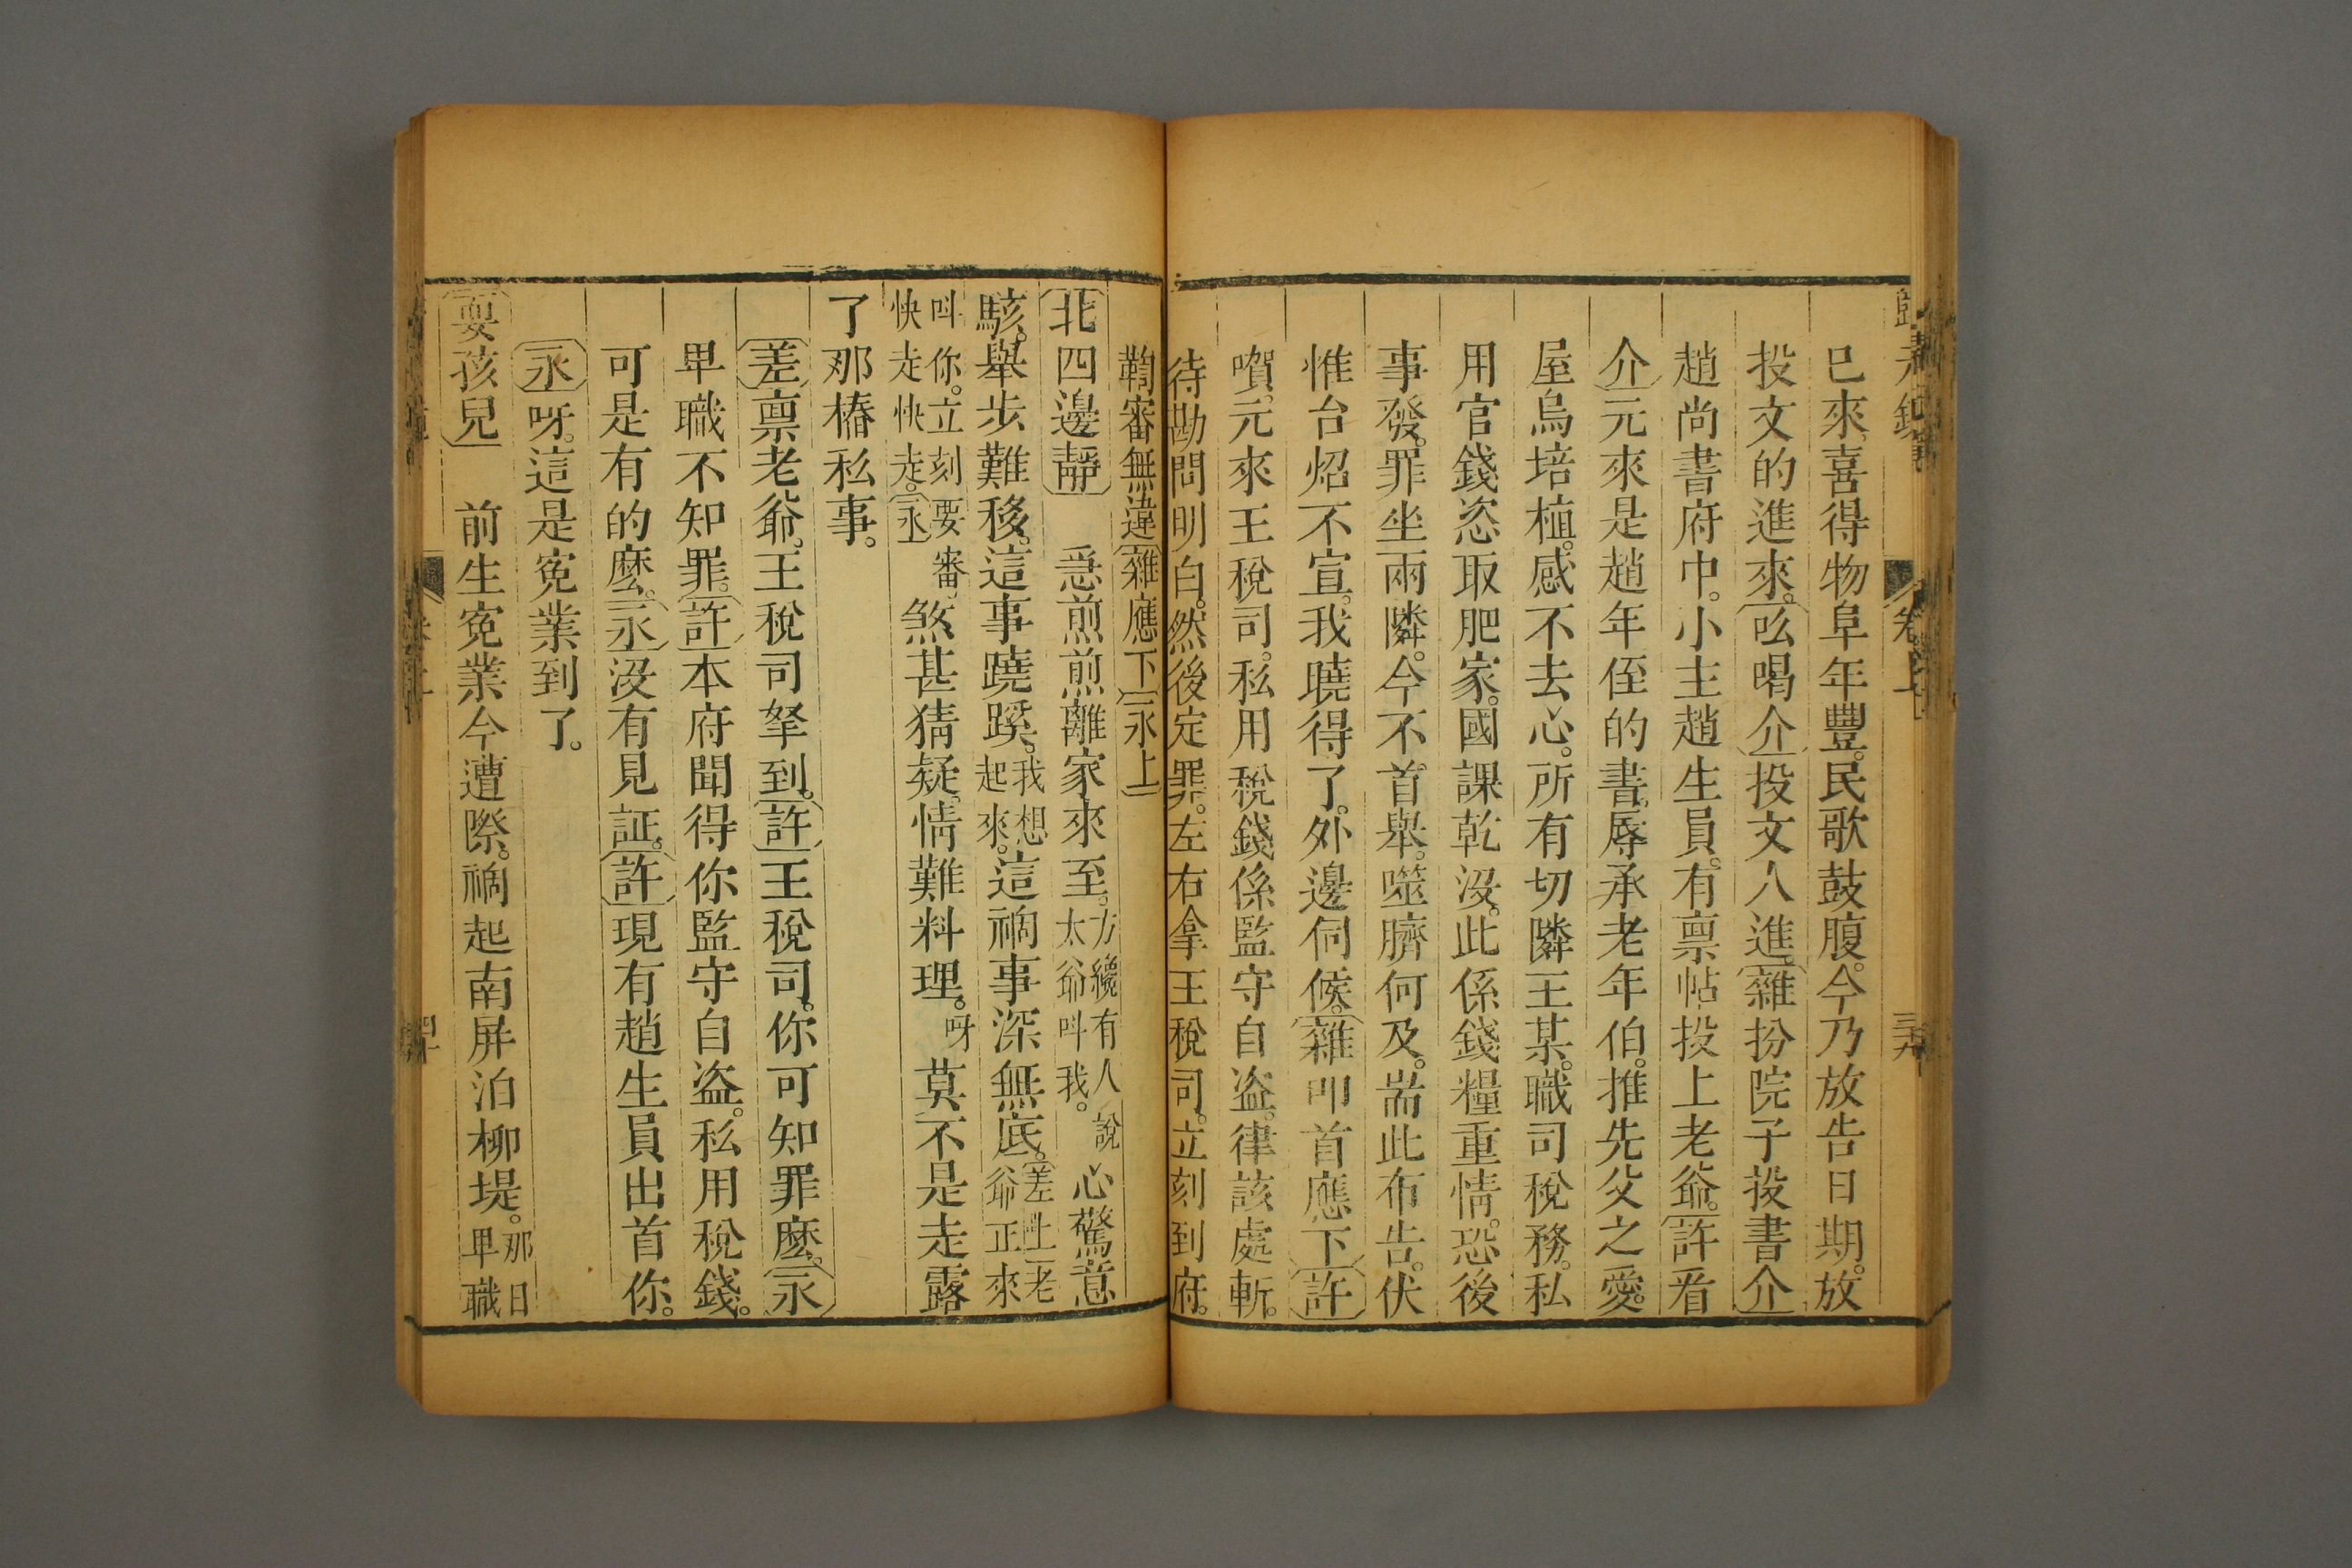 卷上
三六
已來。喜得物阜年豐。民歌鼓腹。今乃放告日期。放
投文的進來。吆喝介投文人進。雜扮院子投書介
趙尚書府中。小主趙生員。有禀帖投上老爺。許看
介元來是趙年侄的書。辱承老年伯。推先父之愛。
屋烏培植。感不去心。所有切隣王某。職司稅務。私
用官錢恣取肥家。國課乾沒。此係錢糧重情。恐後
事發。罪坐兩隣。今不首舉。噬臍何及。耑此布告。伏
惟台炤不宣。我曉得了。外邊伺候。雜叩首應下許
嘪。元來王稅司。私用稅錢係監守自盗。律該處斬。
待勘問明白。然後定罪。左右拿王稅司。立刻到府。
鞫審無違雜應下永上
北四邊靜 急煎煎離家來至。方纔有人說太爺呌我。心驚意
駭。舉步難移。這事蹺蹊。我想起來。這禍事深無底。差上老爺正來
呌你。立刻要審快走快走。永煞甚猜疑。情難料理。呀莫不是走露
了那樁私事。
差禀老爺。王稅司拏到。許王稅司。你可知罪麽。永
卑職不知罪。許本府聞得你監守自盗。私用稅錢。
可是有的麽。永沒有見証。許現有趙生員出首你。
永呀。這是寃業到了。
耍孩兒 前生寃業今遭際。禍起南屏泊柳堤。那日卑職